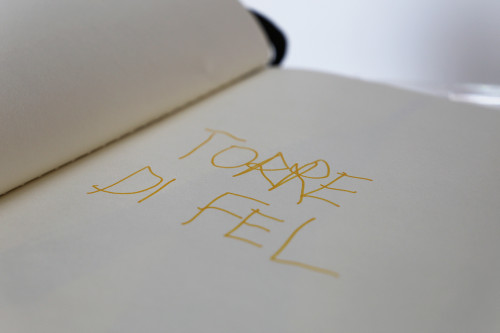 TORRE
DI FEL